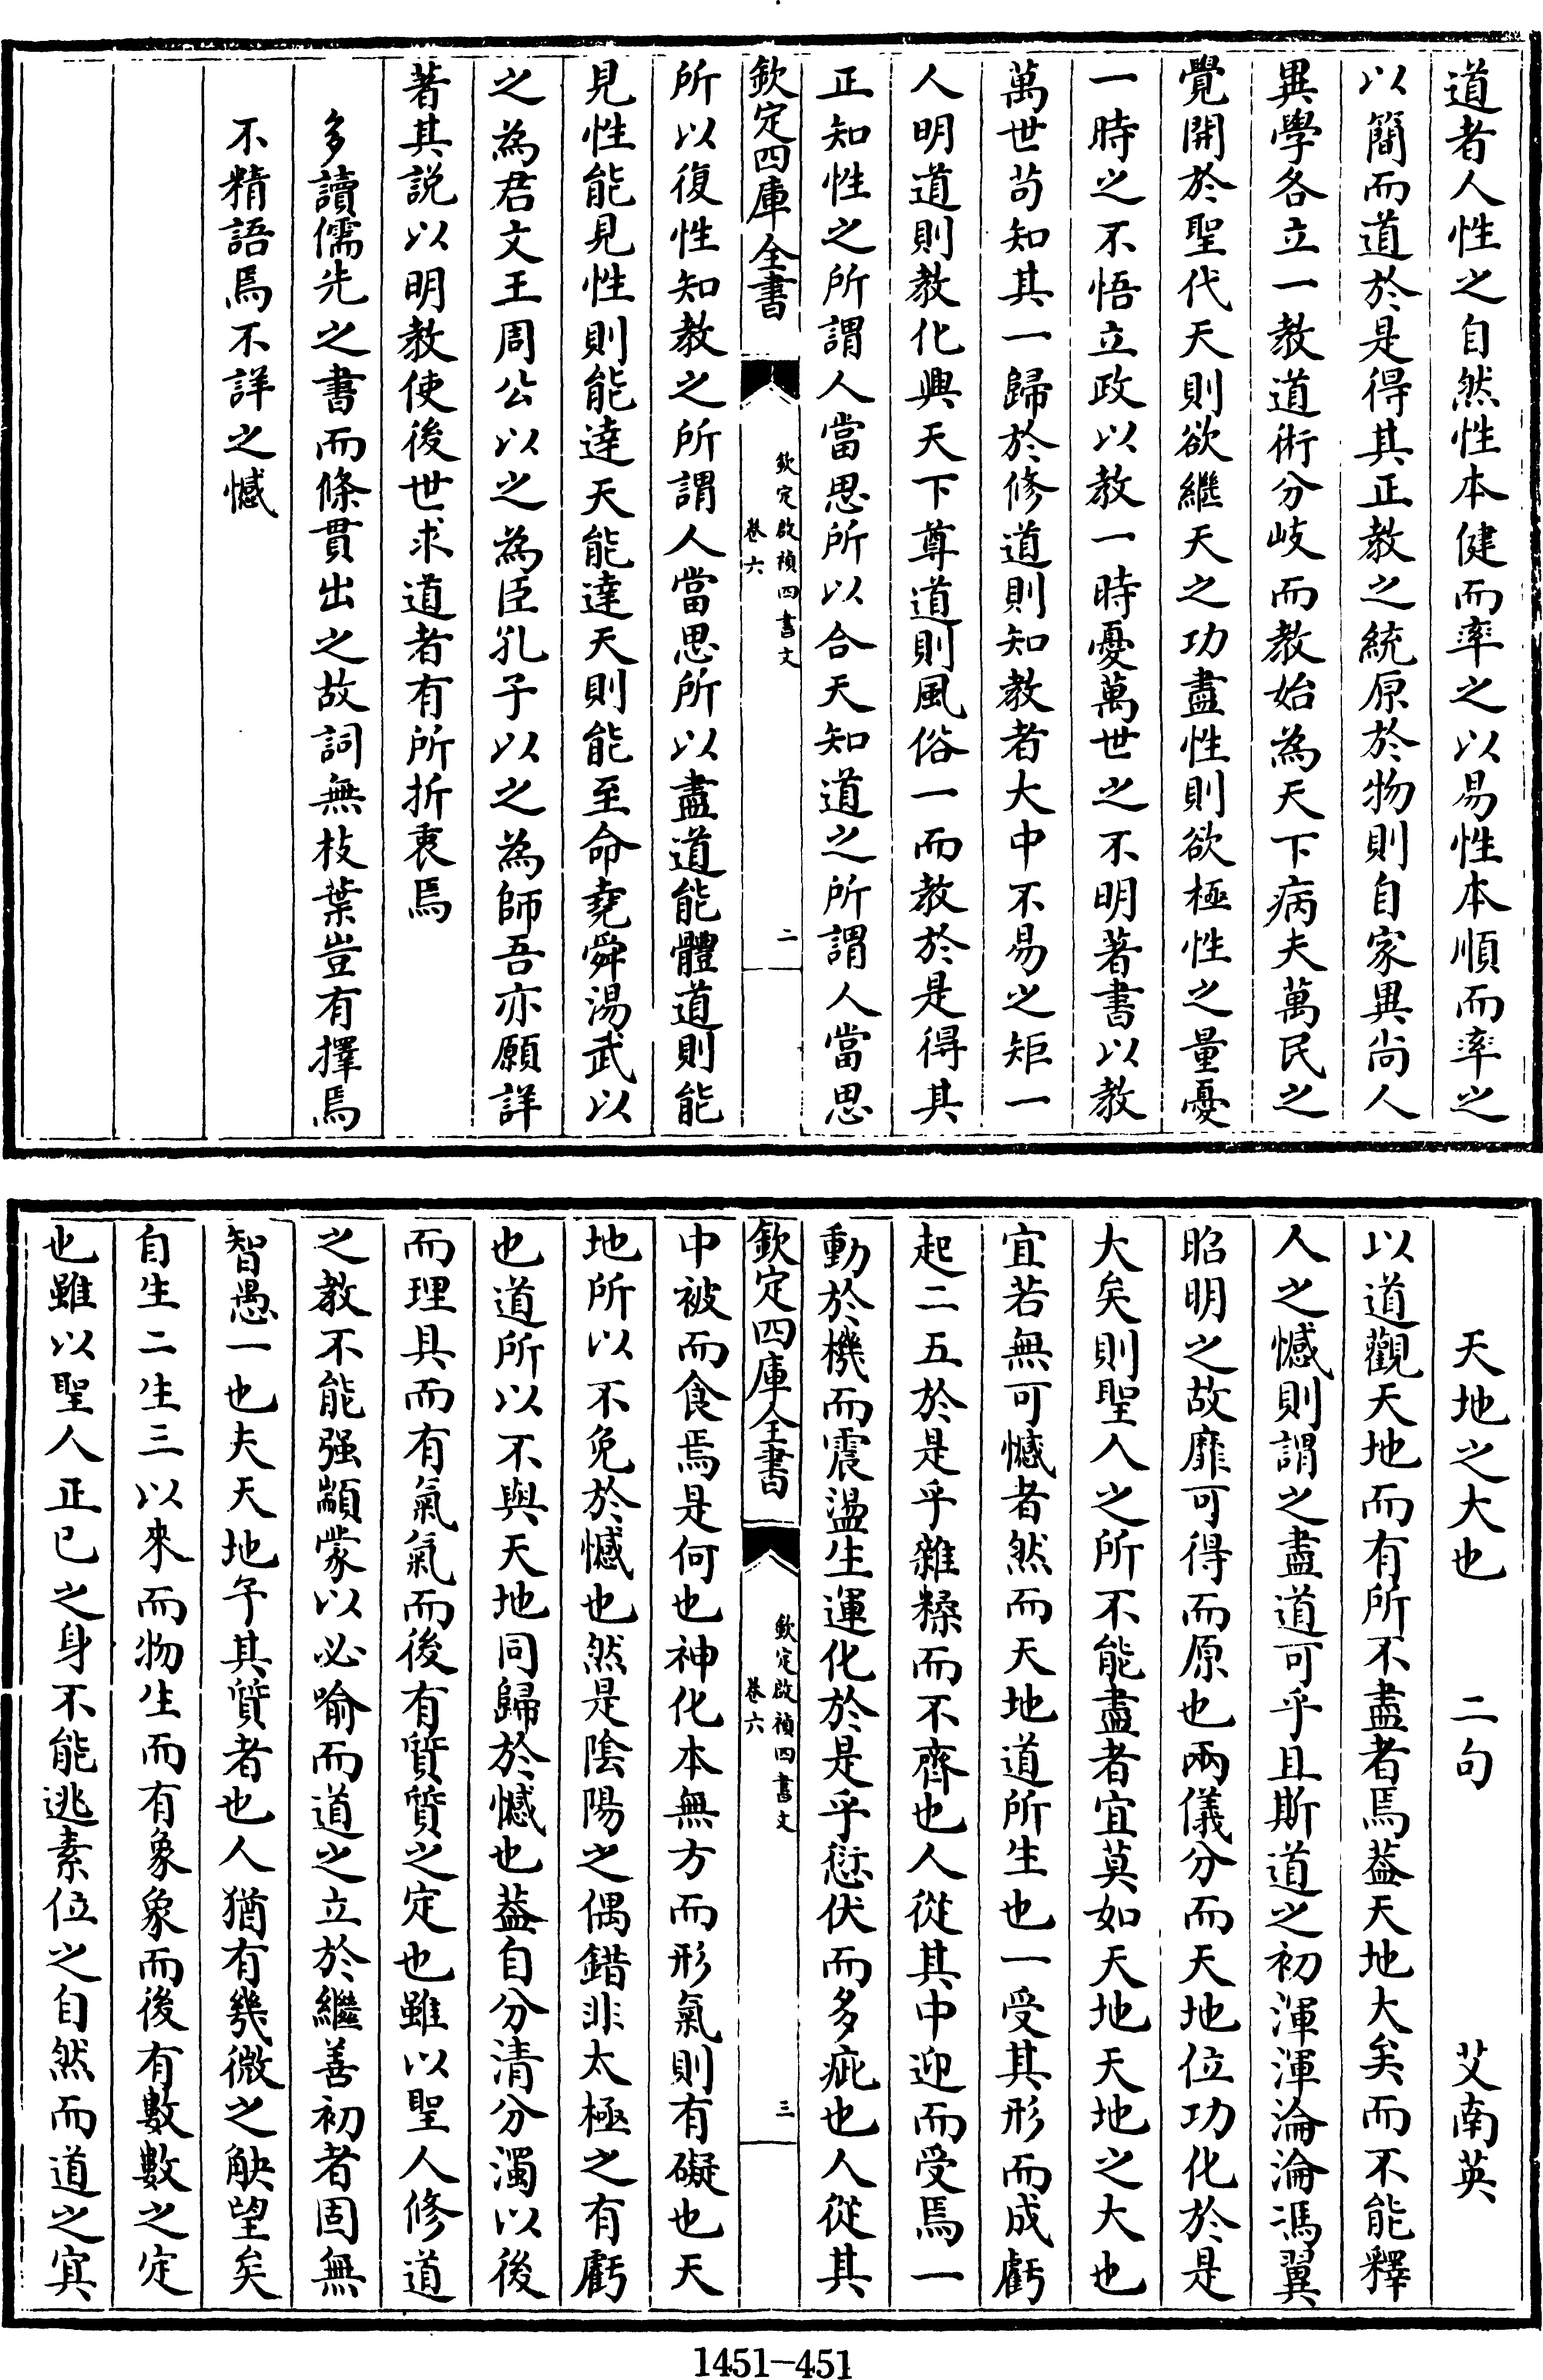 道者人性之自然性本健而率之以易性本順而率之
以簡而道於是得其正教之統原於物則自家異尚人
異學各立一教道術分岐而教始為天下病夫萬民之
覺開於聖代天則欲繼天之功盡性則欲極性之量憂
一時之不悟立政以教一時憂萬世之不明著書以教
萬世苟知其一歸於修道則知教者大中不易之矩一
人明道則教化興天下尊道則風俗一而教於是得其
正知性之所謂人當思所以合天知道之所謂人當思
欽定四庫全書
欽定啟禎四書文
卷六
二
所以復性知教之所謂人當思所以盡道能體道則能
見性能見性則能達天能達天則能至命堯舜湯武以
之為君文王周公以之為臣孔子以之為師吾亦願詳
著其説以明教使後世求道者有所折衷焉
多讀儒先之書而條貫出之故詞無枝葉豈有擇焉
不精語焉不詳之憾
天地之大也 二句 艾南英
以道觀天地而有所不盡者焉葢天地大矣而不能釋
人之憾則謂之盡道可乎且斯道之初渾渾淪淪馮翼
昭明之故靡可得而原也兩儀分而天地位功化於是
大矣則聖人之所不能盡者宜莫如天地天地之大也
宜若無可憾者然而天地道所生也一受其形而成虧
起二五於是乎雜糅而不齊也人從其中迎而受焉一
動於機而震盪生運化於是乎愆伏而多疵也人從其
欽定四庫全書
欽定啟禎四書文
卷六
三
中被而食焉是何也神化本無方而形氣則有礙也天
地所以不免於憾也然是陰陽之偶錯非太極之有虧
也道所以不與天地同歸於憾也葢自分清分濁以後
而理具而有氣氣而後有質質之定也雖以聖人修道
之教不能强顓蒙以必喻而道之立於繼善初者固無
智愚一也夫天地乎其質者也人猶有㡬微之觖望矣
自生二生三以來而物生而有象象而後有數數之定
也雖以聖人正已之身不能逃素位之自然而道之寘
1451—451